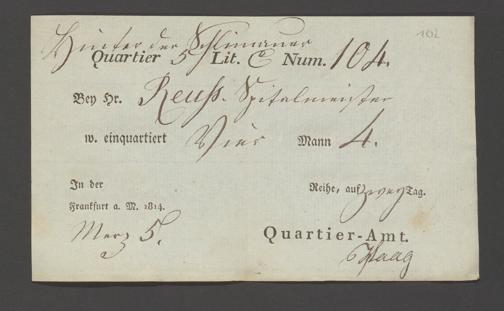 Hinter der Schlimauer
Quartier 5 Lit. C Num. 104.
Bey Hr. Reuß. Spitalmeister
w. einquartiert Vier Mann 4.
In der Reihe, auf zwey Tag.
Frankfurt a. M. 1814.
Merz 5.
Quartier-Amt.